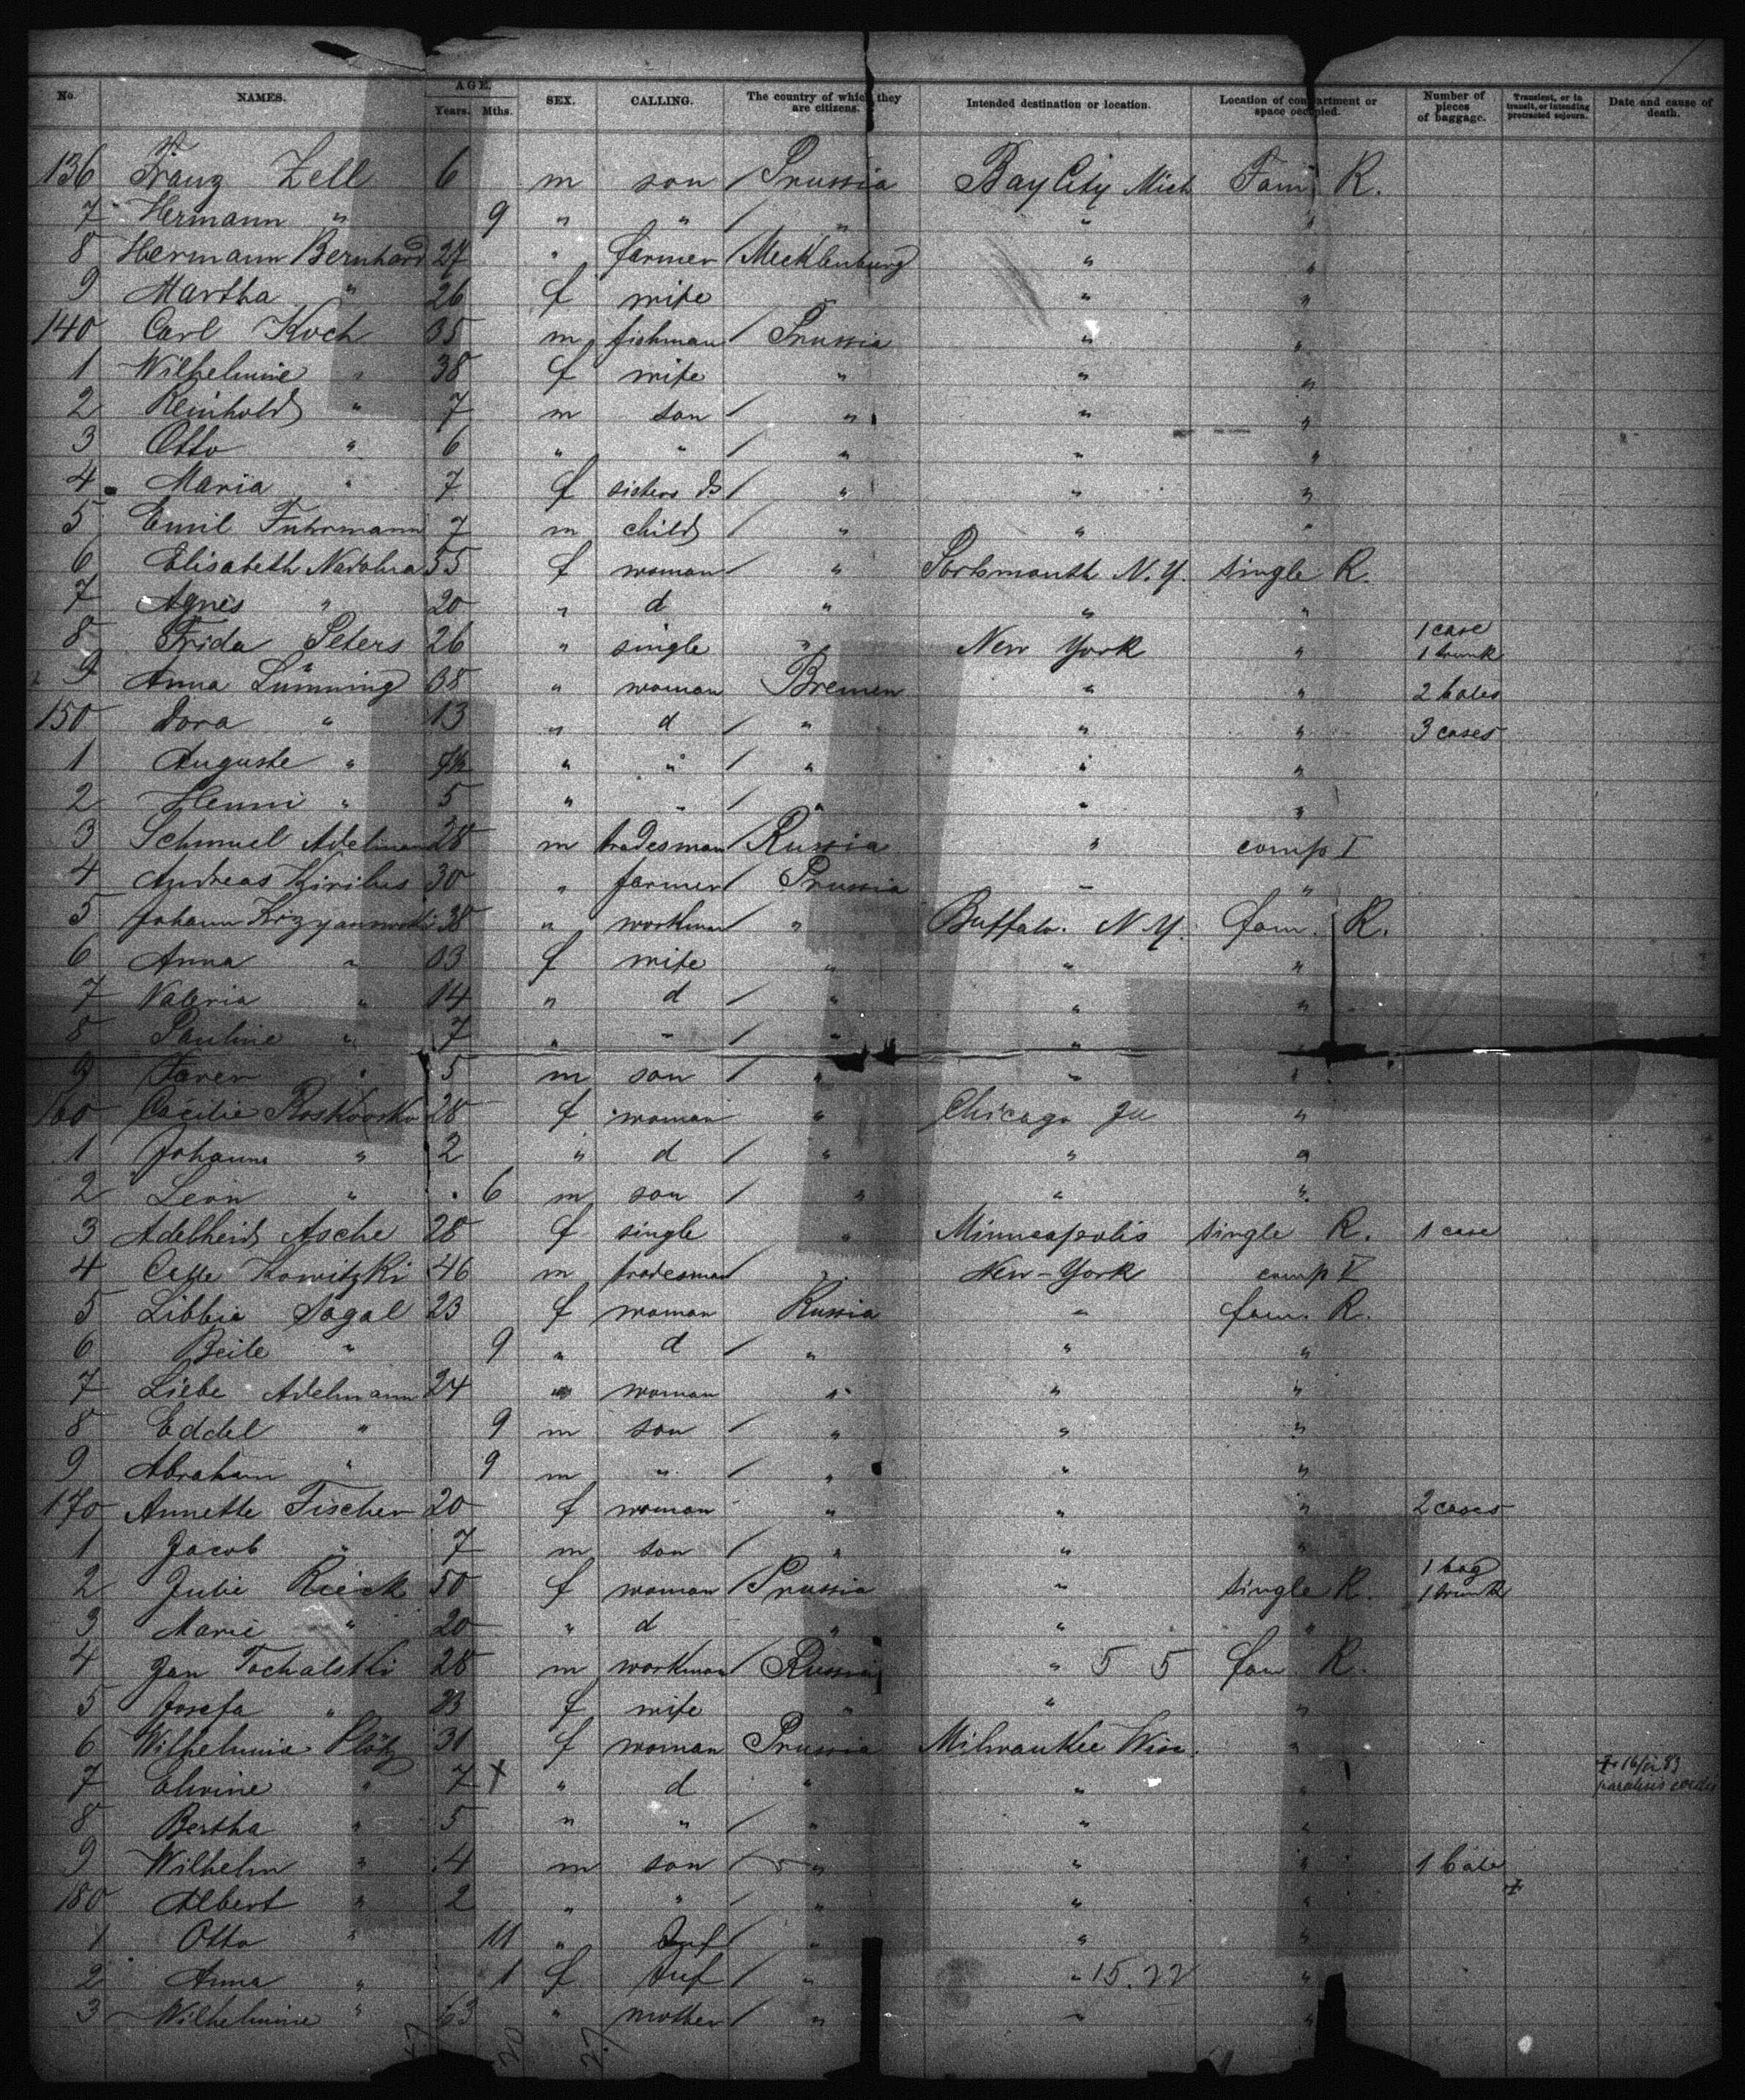 No. NAMES. AGE. Years. Mths. SEX. CALLING. The country of which they are citizens. Intended destination or location. Location of compartment or space occupied. Number of pieces of baggage. Transient, or in transit, or intending protracted sojourn. Date and cause of death.
136 Franz Zell 6 m son / Prussia Bay City Mich Fam R.
7 Hermann " 9 " " / " " "
8 Hermann Bernhard 27 " farmer / Mecklenburg " "
9 Martha " 26 f wife " "
140 Carl Koch 35 m fishman / Prussia " "
1 Wilhelmine " 38 f wife " " "
2 Reinhold " 7 m son / " " "
3 Otto " 6 " " / " " "
4 Maria " 7 f sisters d / " " "
5 Emil Fuhrmann 7 m child / " " "
6 Elisabeth 55 f woman / " Portsmouth N.Y. single R.
7 Agnes " 20 " d " " "
8 Frida Peters 26 " single " New York " 1 case 1 trunk
9 Anna Lümming 38 " woman Bremen " " 2 bales
150 Dora " 13 " d / " " " 3 cases
1 Auguste " " " / " " "
2 Henni " 5 " " / " " "
3 Schmuel Adelmann 28 m tradesman / Russia " comp I
4 Andreas 30 " farmer / Prussia " "
5 Johann 38 " workman " Buffalo. N.Y. fam. R.
6 Anna " 33 f wife " " "
7 Valeria " 14 " d / " " "
8 Pauline " 7 " " / " " "
9 " 5 m son / " " "
160 Cäcilie 28 f woman " Chicago Ill "
1 Johanna " 2 " d / " " "
2 Leon " 6 m son / " " "
3 Adelheid Asche 28 f single " Minneapolis single R. 1 case
4 46 m tradesman / " New-York comp V
5 Libbie Sagal 23 f woman Russia " fam. R.
6 Beile " 9 " d / " " "
7 Liebe Adelmann 24 " woman " " "
8 Eddel " 9 m son / " " "
9 Abraham " 9 m " / " " "
170 Annette Fischer 20 f woman " " " 2 cases
1 Jacob " 7 m son / " " "
2 Julie Rieck 50 f woman / Prussia " single R. 1 bag 1 trunk
3 Marie " 20 " d " " "
4 Jan Tochalski 28 m workman / Russia " 5 5 fam R.
5 Josefa " 23 f wife " " "
6 Wilhelmine Plötz 31 f woman Prussia Milwaukee Wisc. "
7 " 7 + " d " " " 83
8 Bertha " 5 " " / " " "
9 Wilhelm " 4 m son / " " " 1 bale
180 Albert " 2 " " / " " "
1 Otto " 11 " Inf / " " "
2 Anna " 1 f Inf / " " 15.22 "
3 Wilhelmine " 63 " mother / " " "